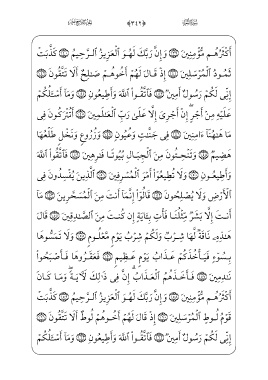 أَكْثَرُهُم مُّؤْمِنِينَ ۝ وَإِنَّ رَبَّكَ لَهُوَ الْعَزِيزُ الرَّحِيمُ ۝ كَذَّبَتْ
ثَمُودُ الْمُرْسَلِينَ ۝ إِذْ قَالَ لَهُمْ أَخُوهُمْ صَالِحٌ أَلَا تَتَّقُونَ ۝
إِنِّي لَكُمْ رَسُولٌ أَمِينٌ ۝ فَاتَّقُوا اللَّهَ وَأَطِيعُونِ ۝ وَمَا أَسْـَٔلُكُمْ
عَلَيْهِ مِنْ أَجْرٍ إِنْ أَجْرِيَ إِلَّا عَلَىٰ رَبِّ الْعَالَمِينَ ۝ أَتُتْرَكُونَ فِي
مَا هَاهُنَا ءَامِنِينَ ۝ فِي جَنَّاتٍ وَعُيُونٍ ۝ وَزُرُوعٍ وَنَخْلٍ طَلْعُهَا
هَضِيمٌ ۝ وَتَنْحِتُونَ مِنَ الْجِبَالِ بُيُوتًا فَارِهِينَ ۝ فَاتَّقُوا اللَّهَ
وَأَطِيعُونِ ۝ وَلَا تُطِيعُوا أَمْرَ الْمُسْرِفِينَ ۝ الَّذِينَ يُفْسِدُونَ فِي
الْأَرْضِ وَلَا يُصْلِحُونَ ۝ قَالُوا إِنَّمَا أَنتَ مِنَ الْمُسَحَّرِينَ ۝ مَا
أَنتَ إِلَّا بَشَرٌ مِّثْلُنَا فَأْتِ بِـَٔايَةٍ إِن كُنتَ مِنَ الصَّادِقِينَ ۝ قَالَ
هَٰذِهِ نَاقَةٌ لَّهَا شِرْبٌ وَلَكُمْ شِرْبُ يَوْمٍ مَّعْلُومٍ ۝ وَلَا تَمَسُّوهَا
بِسُوءٍ فَيَأْخُذَكُمْ عَذَابُ يَوْمٍ عَظِيمٍ ۝ فَعَقَرُوهَا فَأَصْبَحُوا
نَادِمِينَ ۝ فَأَخَذَهُمُ الْعَذَابُ إِنَّ فِي ذَٰلِكَ لَآيَةً وَمَا كَانَ
أَكْثَرُهُم مُّؤْمِنِينَ ۝ وَإِنَّ رَبَّكَ لَهُوَ الْعَزِيزُ الرَّحِيمُ ۝ كَذَّبَتْ
قَوْمُ لُوطٍ الْمُرْسَلِينَ ۝ إِذْ قَالَ لَهُمْ أَخُوهُمْ لُوطٌ أَلَا تَتَّقُونَ ۝
إِنِّي لَكُمْ رَسُولٌ أَمِينٌ ۝ فَاتَّقُوا اللَّهَ وَأَطِيعُونِ ۝ وَمَا أَسْـَٔلُكُمْ